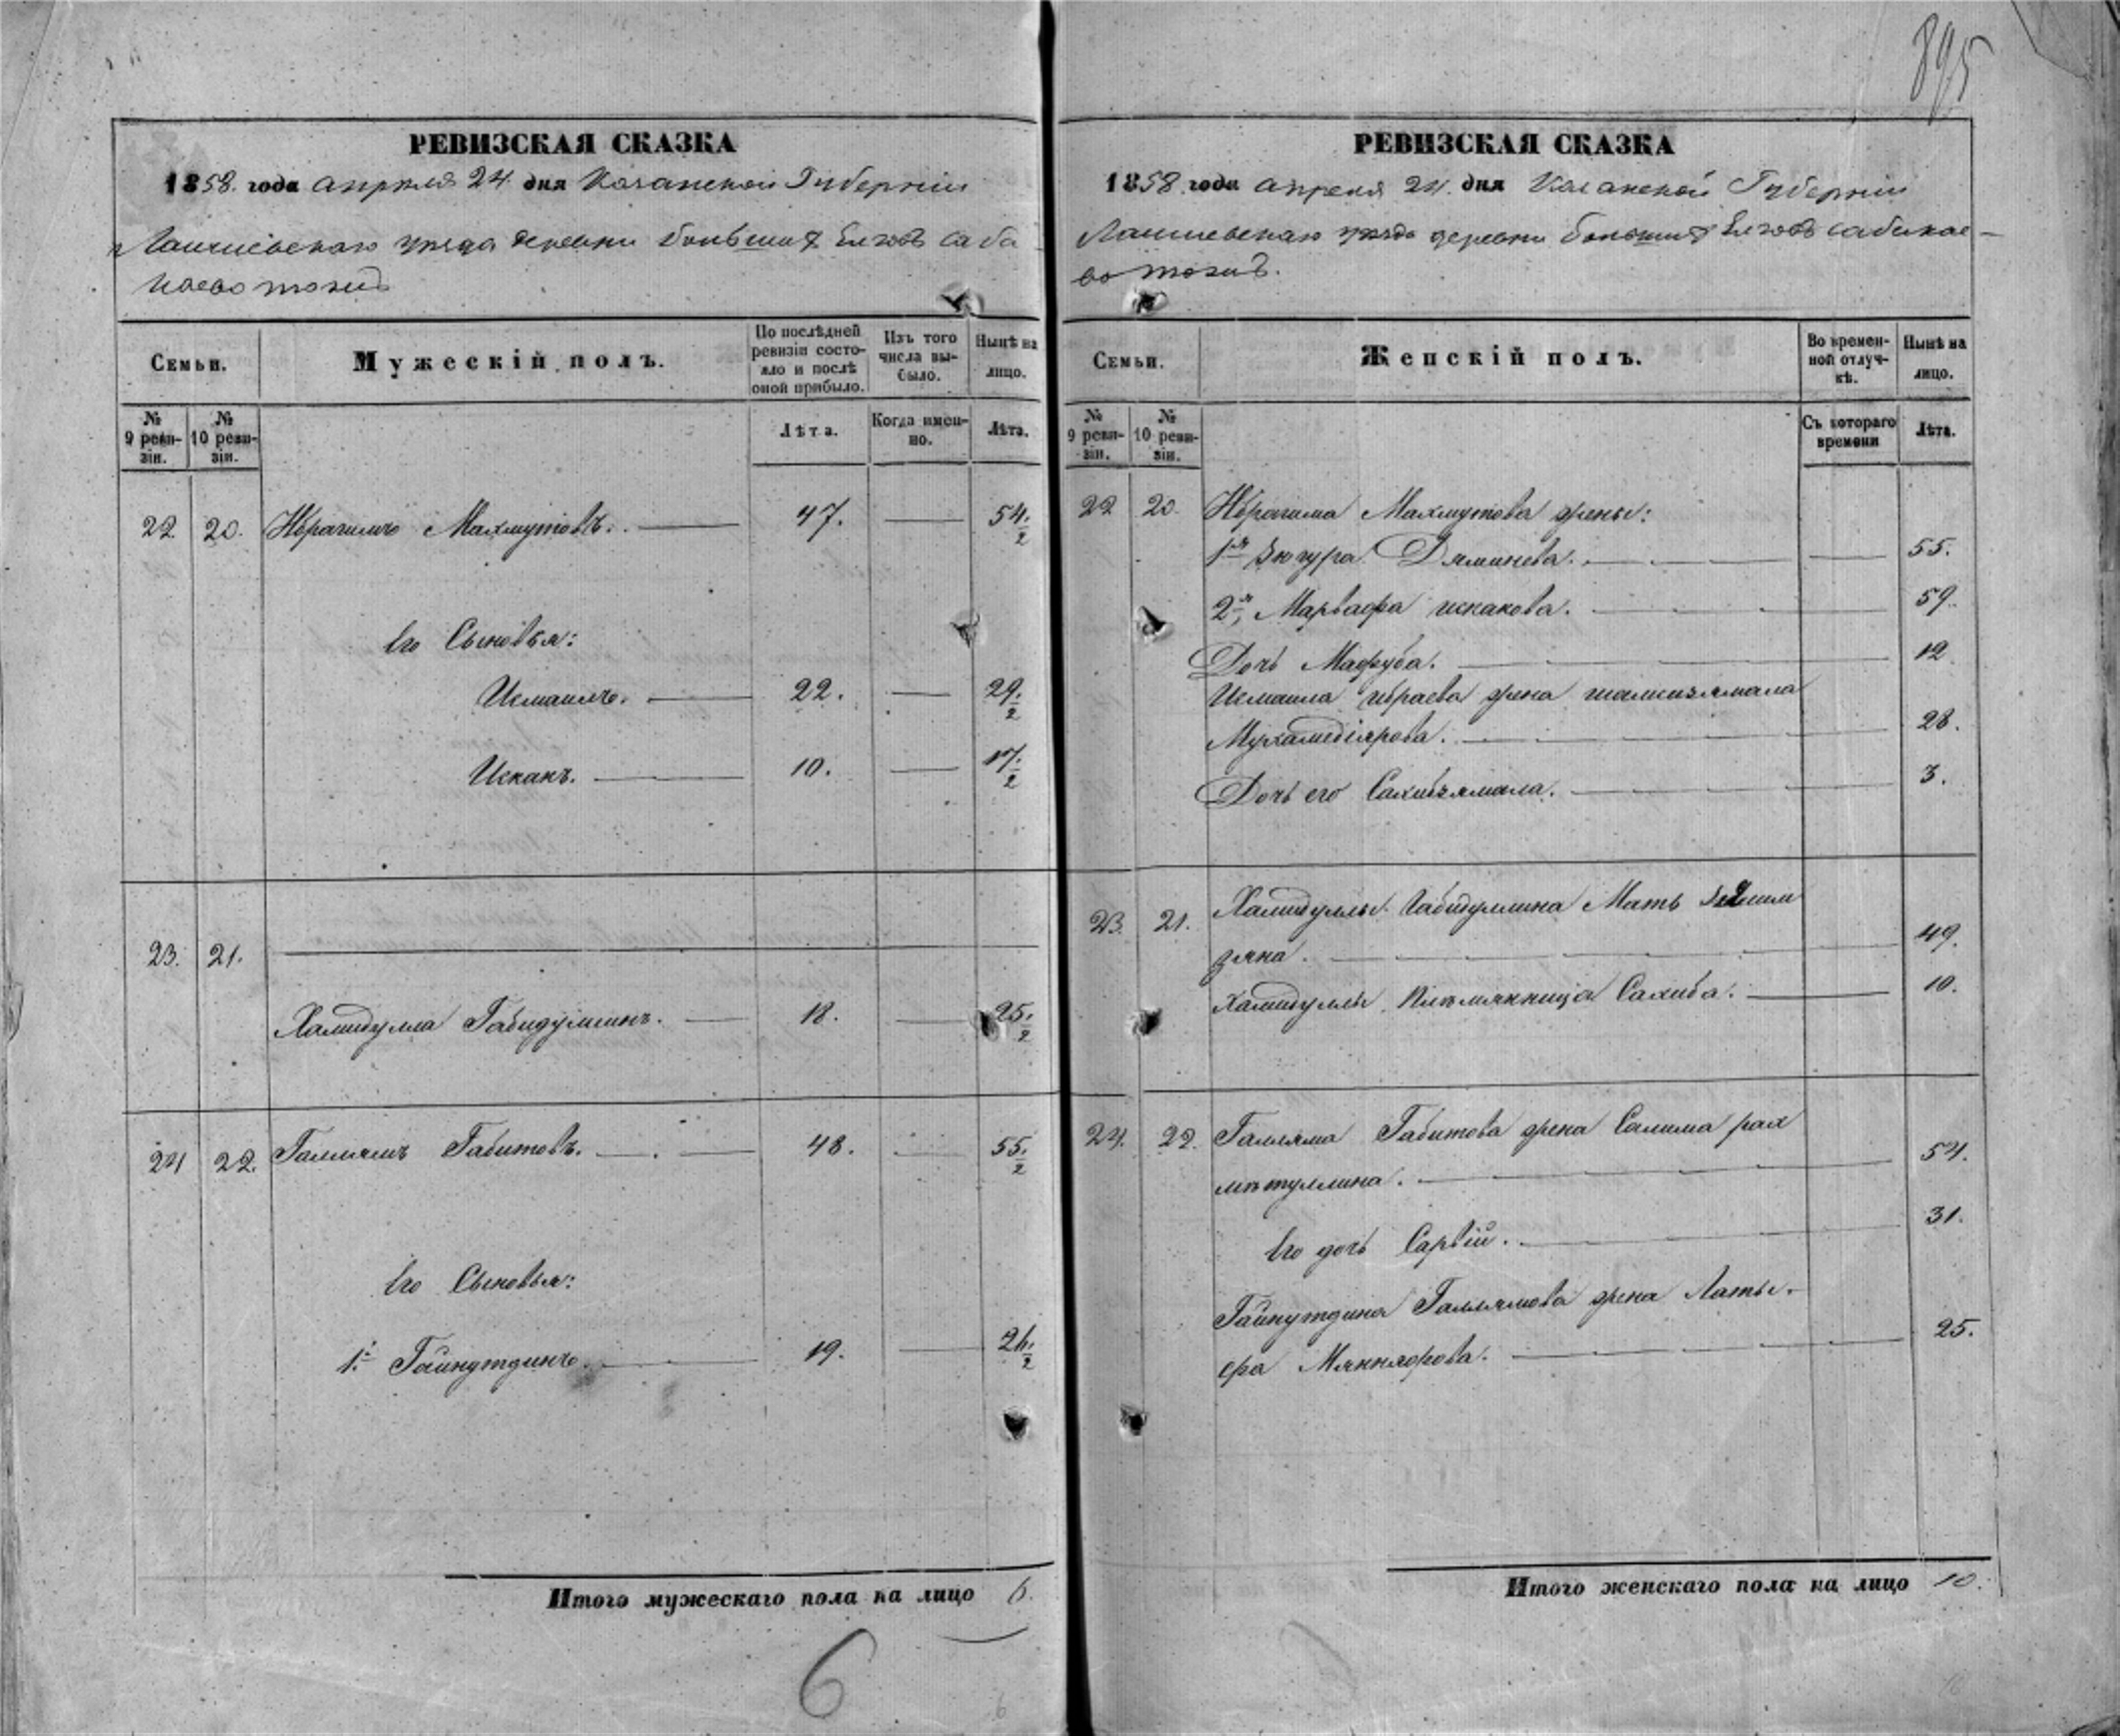 895
РЕВИЗСКАЯ СКАЗКА
1858. года апреля 24. дня Казанской Губернии
Лаишевскаго уезда деревни большихъ Елговъ саба
каево тожъ
Семьи.
Мужескій полъ.
По послѣдней ревизіи состо-яло и послѣ оной прибыло.
Изъ того числа вы-было.
Нынѣ на лицо.
№ 9 реви-зіи.
№ 10 реви-зіи.
Лѣта.
Когда имен-но.
Лѣта.
22. 20. Ибрагимъ Махмутовъ. 47. 54./2
Его Сыновья:
Исмаилъ. 22. 29./2
Искакъ. 10. 17./2
23. 21.
Хамидулла Габидуллинъ. 18. 25./2
24 22. Галлямъ Габитовъ. 48. 55./2
Его Сыновья:
1.й Гайнутдинъ. 19. 26./2
Итого мужескаго пола на лицо 6.
6
РЕВИЗСКАЯ СКАЗКА
1858. года апреля 24. дня Казанской Губернии
Лаишевскаго уезда деревни большихъ Елговъ сабакае-
во тожъ.
Семьи.
Женскій полъ.
Во времен-ной отлуч-кѣ.
Нынѣ на лицо.
№ 9 реви-зіи.
№ 10 реви-зіи.
Съ котораго времени
Лѣта.
22 20. Ибрагима Махмутова жены:
1я Зюгура Дяминева. 55.
2я, Марвафа искакова. 59.
Дочь Мафруба. 12.
Исмаила ибраева жена шамсизямала
Мухамедіярова. 28.
Дочь его Сахибзямала. 3.
23. 21. Хамидуллы Габидуллина Мать
зяна. 49.
Хамидуллы Племянница Сахиба. 10.
24. 22. Галляма Габитова жена Салима рах
мѣтуллина. 54.
Его дочь Сарвій. 31.
Гайнутдина Галлямова жена Латы-
фа Мяннафова. 25.
Итого женскаго пола на лицо 10.